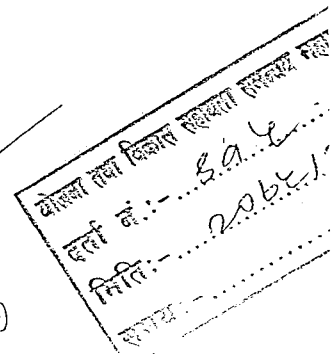 योजना तथा विकास सहायता समन्वय महा
दर्ता नं.:- ३१५
मिति:- २०६५।
समय:-